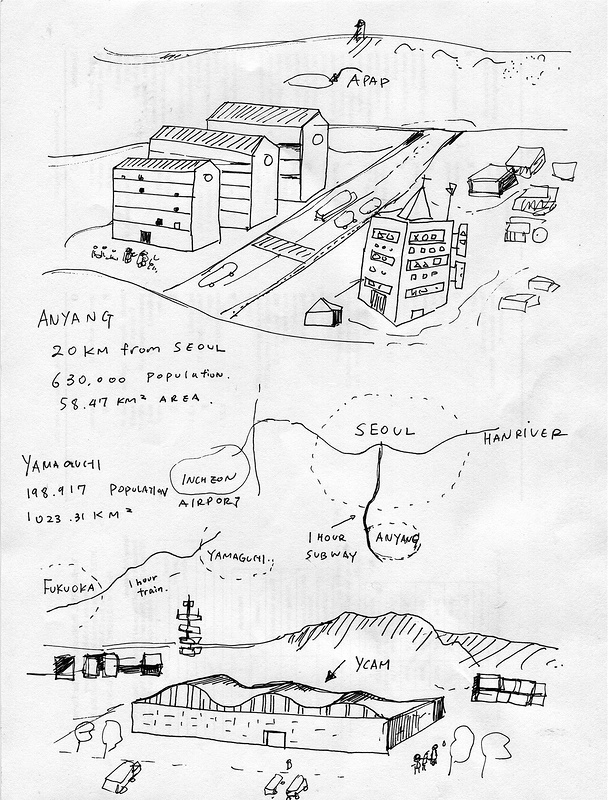 APAP
ANYANG
20 KM from SEOUL
630,000 population.
58.47 KM² AREA.
SEOUL
HANRIVER
YAMAGUCHI
198.917 POPULATION
1023.31 KM²
INCHEON
AIRPORT
1 HOUR
SUBWAY
ANYANG
YAMAGUCHI.
FUKUOKA
1 hour
train.
YCAM